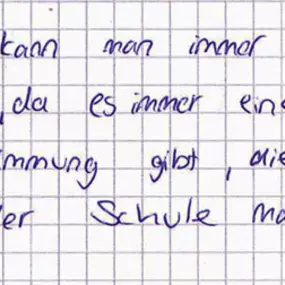 kann man immer
, da es immer eine
immung gibt, die
der Schule ma